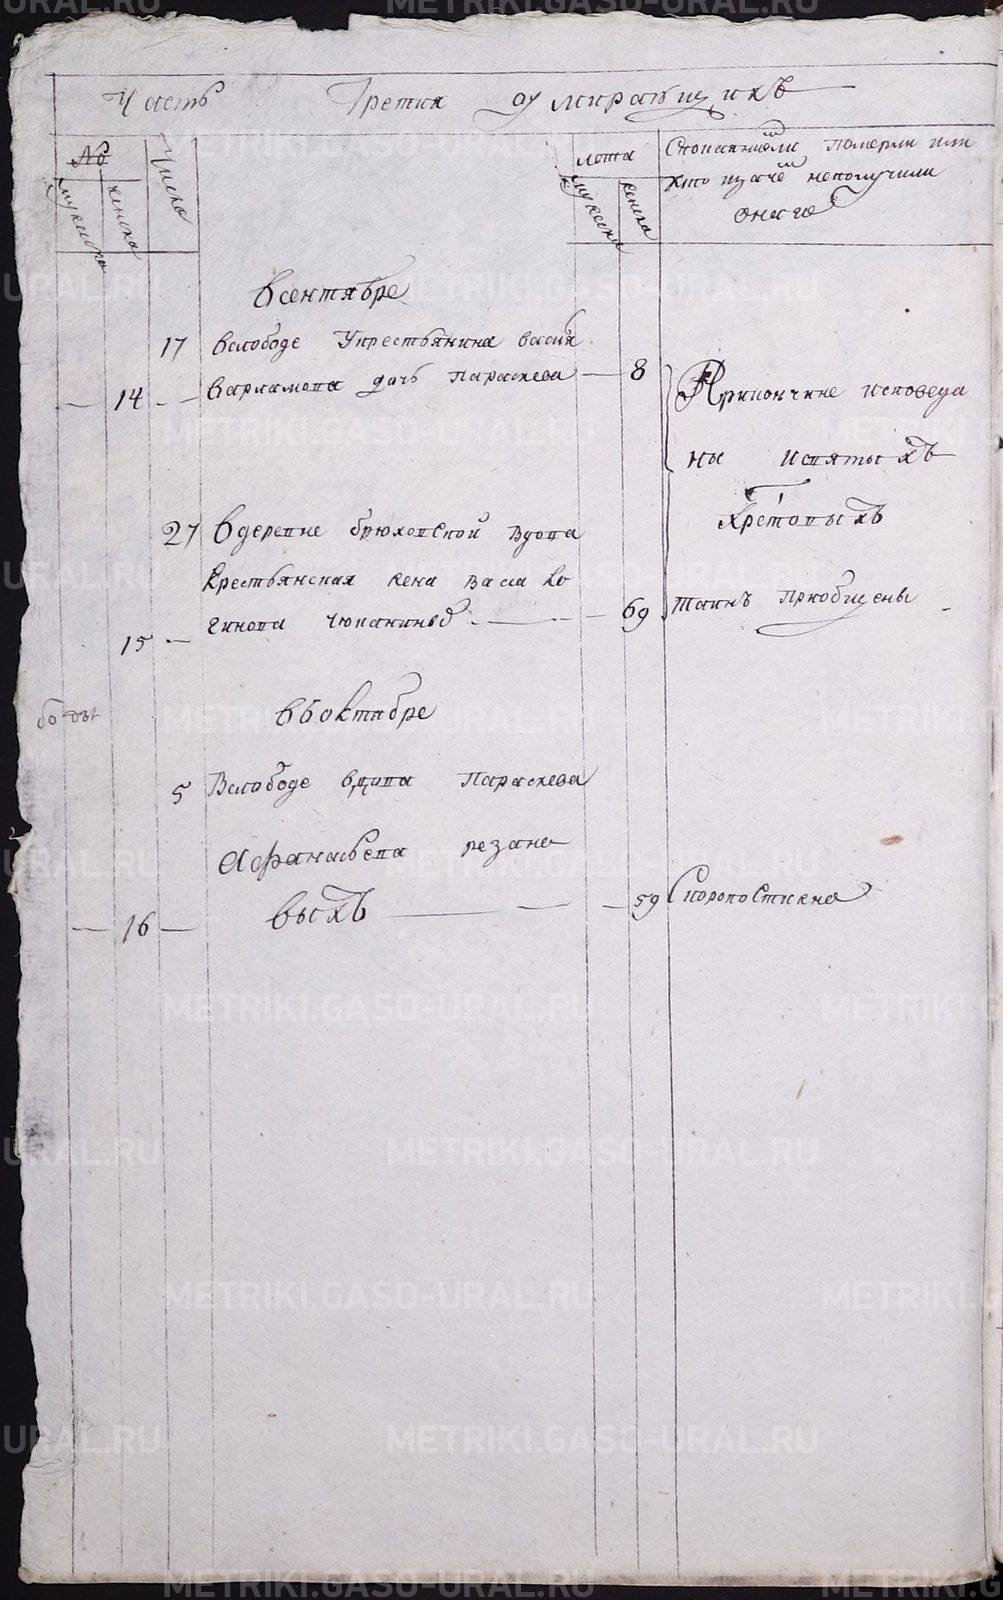 Часть Третия оумирающихъ
№
мужеска
женска
Числа
лѣта
мужеска
женска
Спокаяниемли померли или
кто изачем неполучили
онаго
Всентябре
17 Вслободе Укрестьянина васил
14 Варламова дочь Параскева 8
При кончине исповеда
ны исвятыхъ
27 Вдеревне брюховской вдова
Хрстовыхъ
крестьянская жена Васа Ло
15 гинова чюпаниныхъ 69 Таинъ приобщены
Въоктябре
5 Вслободе вдова Параскева
Афанасьева резано
16 выхъ 59 Скоропостижно
METRIKI.GASO-URAL.RU